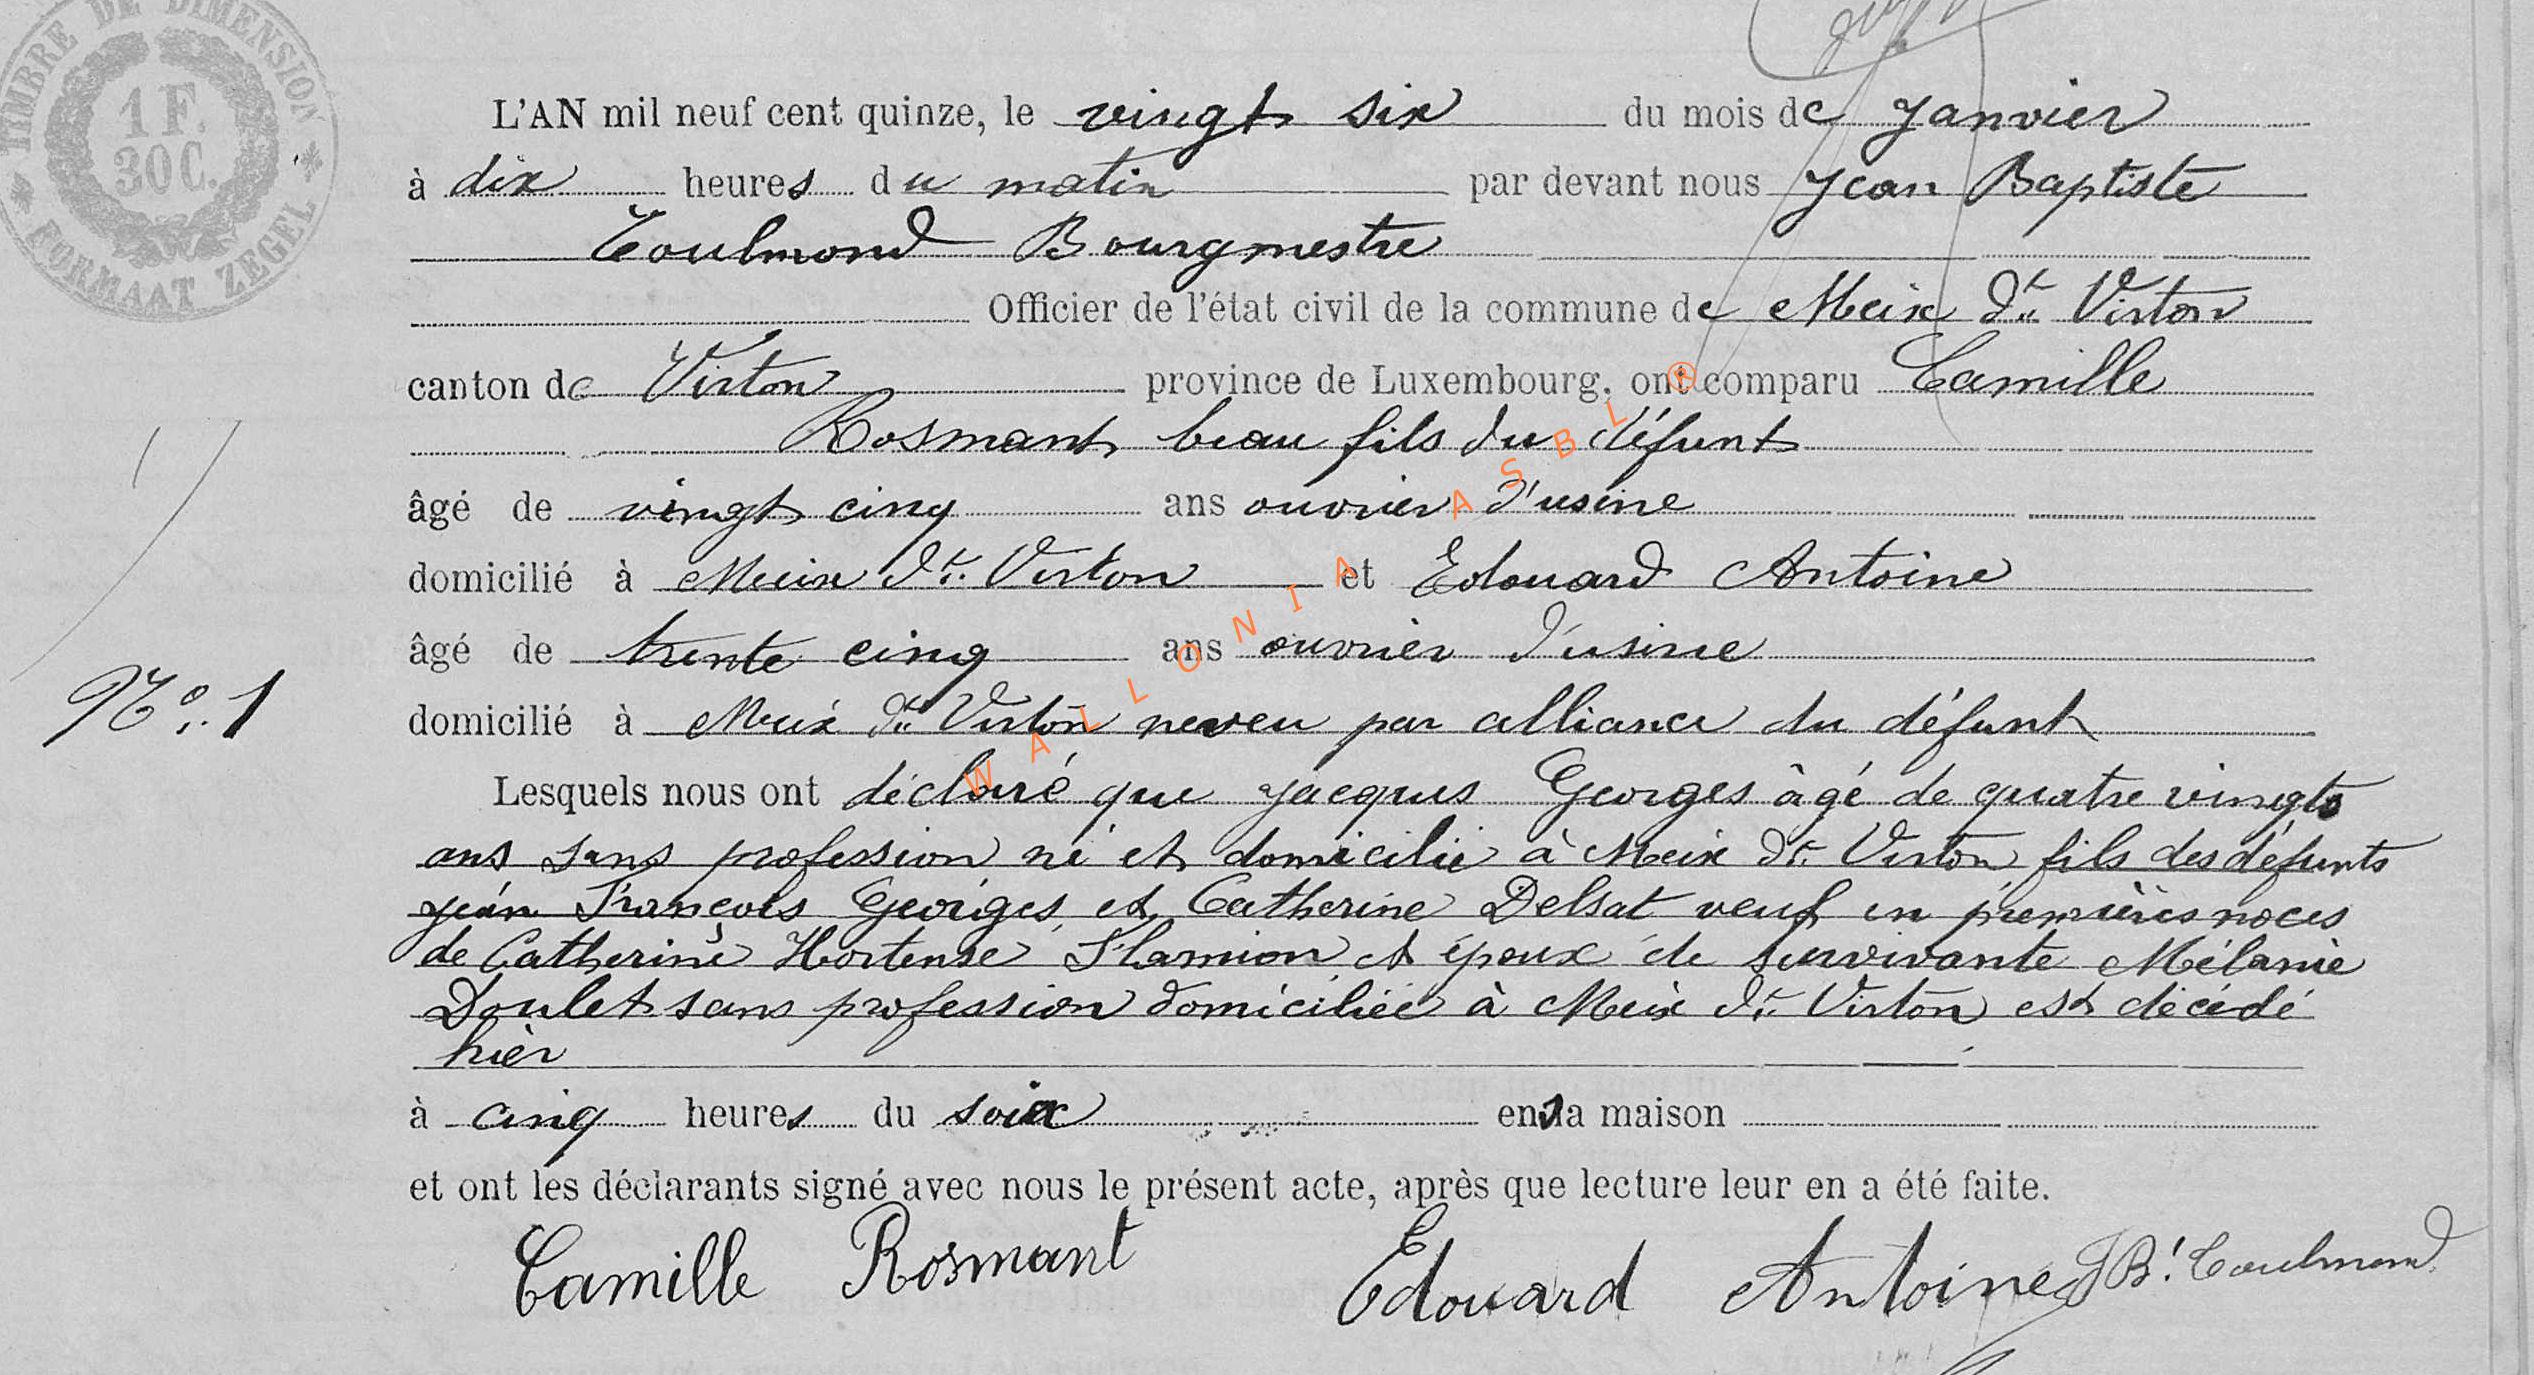 TIMBRE DE DIMENSION
1 F.
30 C.
FORMAAT ZEGEL
L'AN mil neuf cent quinze, le vingt six du mois de Janvier
à dix heures du matin par devant nous Jean Baptiste
Toulmond Bourgmestre
Officier de l'état civil de la commune de Meix dt Virton
canton de Virton province de Luxembourg, ont comparu Camille
Rosmant beau fils du défunt
âgé de vingt cinq ans ouvrier d'usine
domicilié à Meix dt Virton et Edouard Antoine
âgé de trente cinq ans ouvrier d'usine
No. 1
domicilié à Meix dt Virton neveu par alliance du défunt
Lesquels nous ont déclaré que Jacques Georges âgé de quatre vingts
ans sans profession né et domicilié à Meix dt Virton fils des défunts
Jean François Georges et Catherine Delsat veuf en premières noces
de Catherine Hortense Flamion et époux de survivante Mélanie
Doulet sans profession domiciliée à Meix dt Virton est décédé
hier
à cinq heures du soir en sa maison
et ont les déclarants signé avec nous le présent acte, après que lecture leur en a été faite.
Camille Rosmant Edouard Antoine JBt Toulmond
WALLONIA ASBL ®